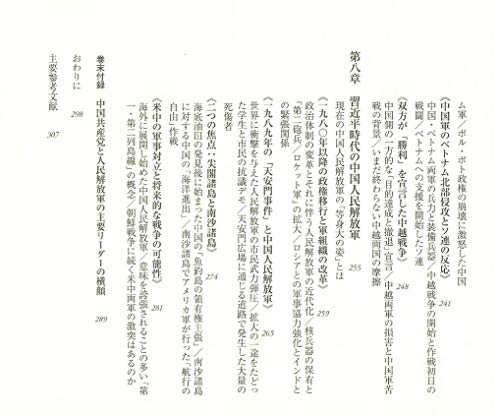 ム軍／ポル・ポト政権の崩壊に激怒した中国
《中国軍のベトナム北部侵攻とソ連の反応》 241
中国・ベトナム両軍の兵力と装備兵器／中越戦争の開始と作戦初日の
戦闘／ベトナムへの支援を開始したソ連
《双方が「勝利」を宣言した中越戦争》 248
中国側の一方的な「目的達成と撤退」宣言／中越両軍の損害と中国軍苦
戦の背景／いまだ終わらない中越両国の摩擦
第八章 習近平時代の中国人民解放軍 255
現在の中国人民解放軍の「等身大の姿」とは
《一九八〇年以降の政権移行と軍組織の改革》 259
政治体制の変革とそれに伴う人民解放軍の近代化／核兵器の保有と
「第二砲兵／ロケット軍」の拡大／ロシアとの軍事協力強化とインドと
の緊張関係
《一九八九年の「天安門事件」と中国人民解放軍》 265
世界に衝撃を与えた人民解放軍の市民武力弾圧／拡大の一途をたどっ
た学生と市民の抗議デモ／天安門広場に通じる道路で発生した大量の
死傷者
《二つの焦点・尖閣諸島と南沙諸島》 274
海底油田の発見後に始まった中国の「魚釣島の領有権主張」／南沙諸島
に対する中国の「海洋進出」／南沙諸島でアメリカ軍が行った「航行の
自由」作戦
《米中の軍事対立と将来的な戦争の可能性》 281
海外に展開し始めた中国人民解放軍／意味を誇張されることの多い「第
一・第二列島線」の概念／朝鮮戦争に続く米中両軍の激突はあるのか
巻末付録 中国共産党と人民解放軍の主要リーダーの横顔 289
おわりに 298
主要参考文献 307